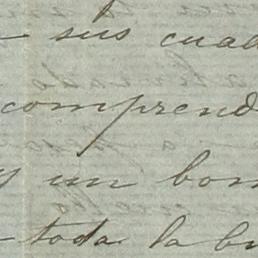 sus cuad
comprend
y un bon
toda la bu